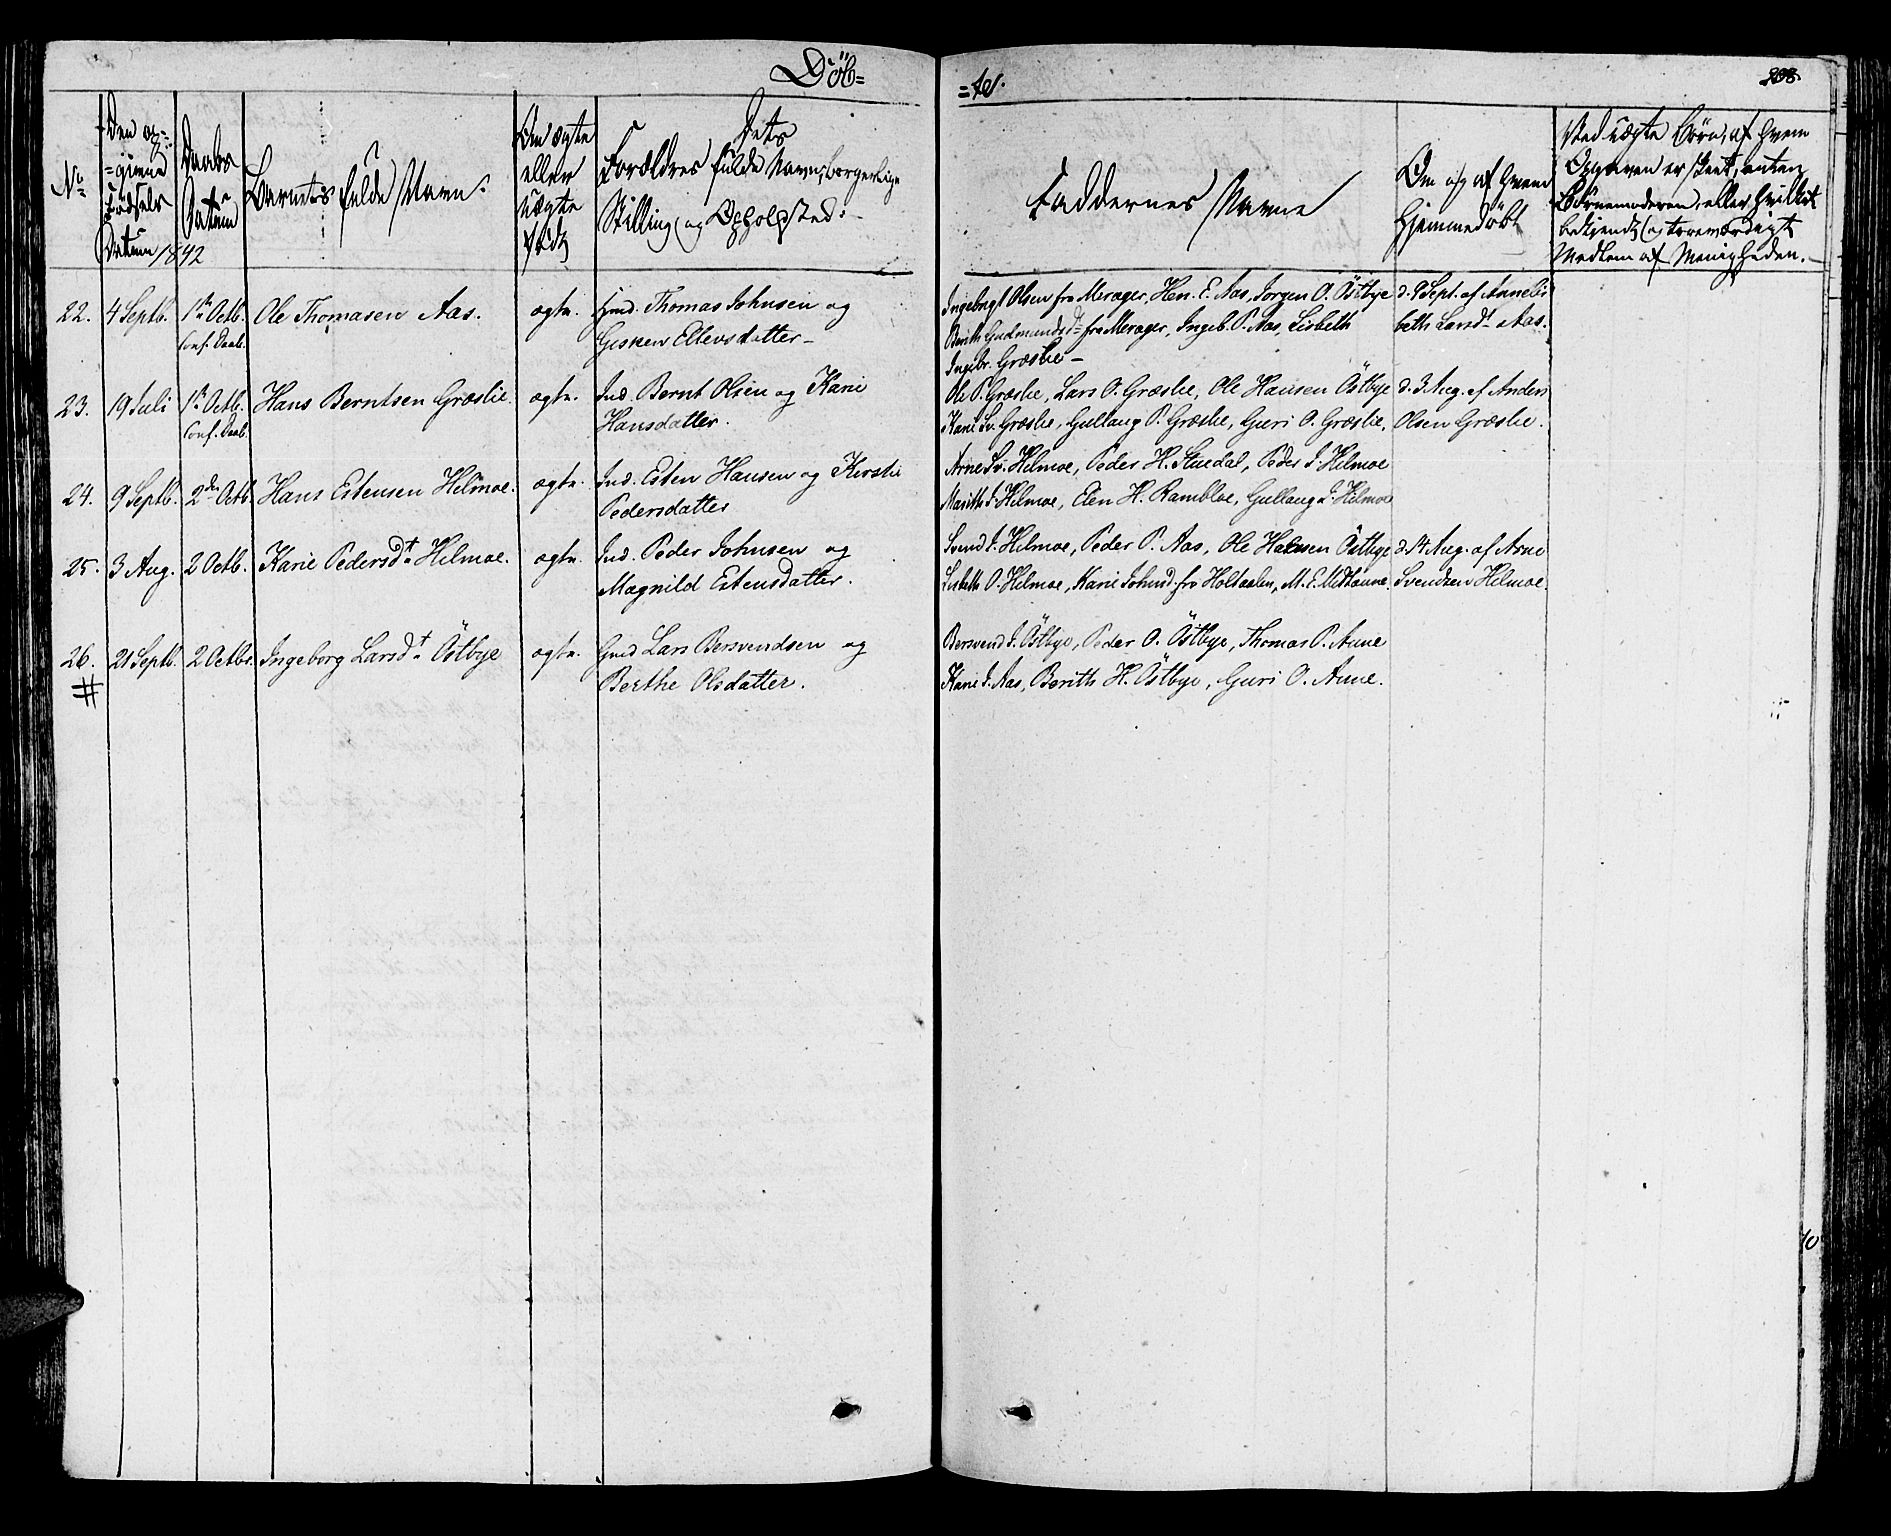 Döb=
=te.
208.
No
Den op=
=givne
Fødsels
Datum 1842
Daabs
Datum
Barnets fulde Navn.
Om ægte
eller
uægte
født
Dets
Forældres fulde Navn, borgerlige
Stilling og Boepælssted.
Faddernes Navne
Om og af hvem
hjemmedöbt
Ved uægte Börn, af hvem
Opgaven er skeet, enten
Barnemoderen, eller hvilket
bekjendt og troeværdigt
Medlem af Menigheden.
22. 4 Septb. 1ste Octb. Ole Thomasen Aas. ægte. Gmd. Thomas Johnsen og
Conf. Daab. Gesken Ellevsdatter
Ingebregt Olsen fra Merager, Hen. E. Aas, Jörgen O. Östbye
Berith Gudmundsdt fra Merager, Ingeb. P. Aas, Lisbeth
Ingebr. Græslie
d. 9 Sept. af Anneli
beth Larsdt Aas.
23. 19 Juli 1ste Octb. Hans Berntsen Græslie. ægte. Ind. Bernt Olsen og Kari
Conf. Daab. Hansdatter.
Ole P. Græslie, Lars O. Græslie, Ole Hansen Östbye
Kari Sv. Græslie, Gullaug P. Græslie, Guri O. Græslie.
d. 3 Aug. af Anders
Olsen Græslie.
24. 9 Septb. 2den Octb. Hans Estensen Hilmoe. ægte. Ind. Esten Hansen og Kirsti
Pedersdatter
Arne Sv. Hilmoe, Peder H. Stuedal, Peder J. Hilmoe
Marith J. Hilmoe, Elen H. Rambloe, Gullaug J. Hilmoe
25. 3 Aug. 2 Octb. Karie Pedersdt Hilmoe. ægte. Ind. Peder Johnsen og
Magnild Estensdatter.
Svend J. Hilmoe, Peder P. Aas, Ole Hansen Östbye
Lisbeth O. Hilmoe, Karie Johnsd. fra Holtaalen, M. E. Midtaune.
d. 14 Aug. af Arne
Svendsen Hilmoe.
26. 21 Septb. 2 Octbr. Ingeborg Larsdt Östbye ægte. Gmd Lars Bersvendsen og
# Berthe Olsdatter.
Bersvend J. Östbye, Peder O. Östbye, Thomas P. Aune
Kari J. Aas, Berith H. Östbye, Guri O. Aune.
10